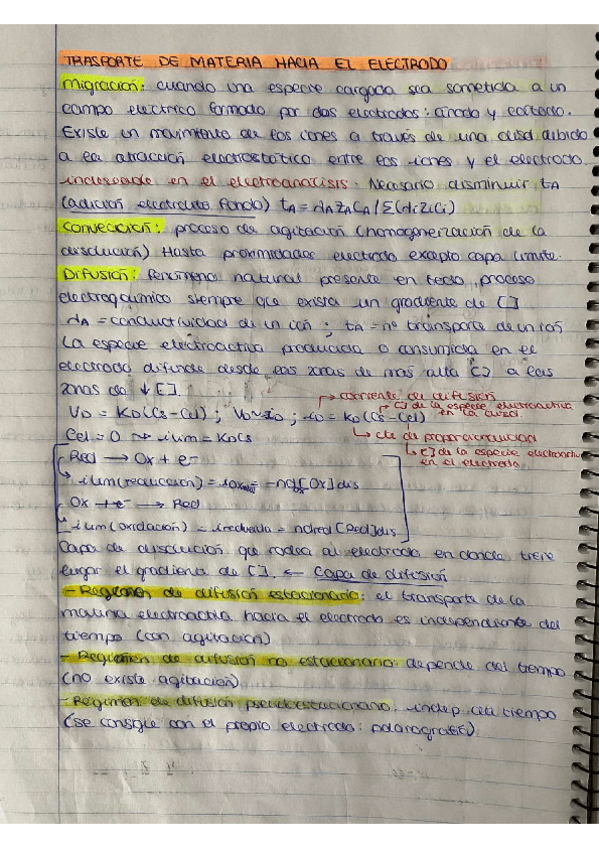 TRASPORTE DE MATERIA HACIA EL ELECTRODO
Migración: cuando una especie cargada sea sometida a un
campo eléctrico formado por dos electrodos: ánodo y cátodo.
Existe un movimiento de los iones a través de una disol debido
a la atracción electrostático entre los iones y el electrodo.
indeseable en el electroanálisis. Necesario disminuir tA
(adición electrolito fondo) tA = λAZACA/Σ(λiZiCi)
Convección: proceso de agitación (homogeneización de la
disolución) Hasta proximidades electrodo excepto capa límite.
Difusión: fenómeno natural presente en todo proceso
electroquímico siempre que exista un gradiente de [ ]
λA = conductividad de un ión ; tA = nº transporte de un ión
La especie electroactiva producida o consumida en el
electrodo difunde desde las zonas de más alta [ ] a las
zonas de ↓[ ].
→ corriente de difusión
→ [ ] de la especie electroactiva
en la disol
VD = KD(Cs-Cel) ; VD≈iD ; iD = KD(Cs-Cel)
→ cte de proporcionalidad
→ [ ] de la especie electroactiva
en el electrodo
Cel = 0 → ilim = KDCs
Red → Ox + e-
ilim(reducción) =
Ox + e- → Red
ilim(oxidación) =
Capa de disolución que rodea al electrodo en donde tiene
lugar el gradiente de [ ]. ← Capa de difusión
- Régimen de difusión estacionario: el transporte de la
materia electroactiva hacia el electrodo es independiente del
tiempo (con agitación)
- Régimen de difusión no estacionario: depende del tiempo
(no existe agitación)
- Régimen de difusión pseudoestacionario: indep. del tiempo
(se consigue con el propio electrodo: polarografía)